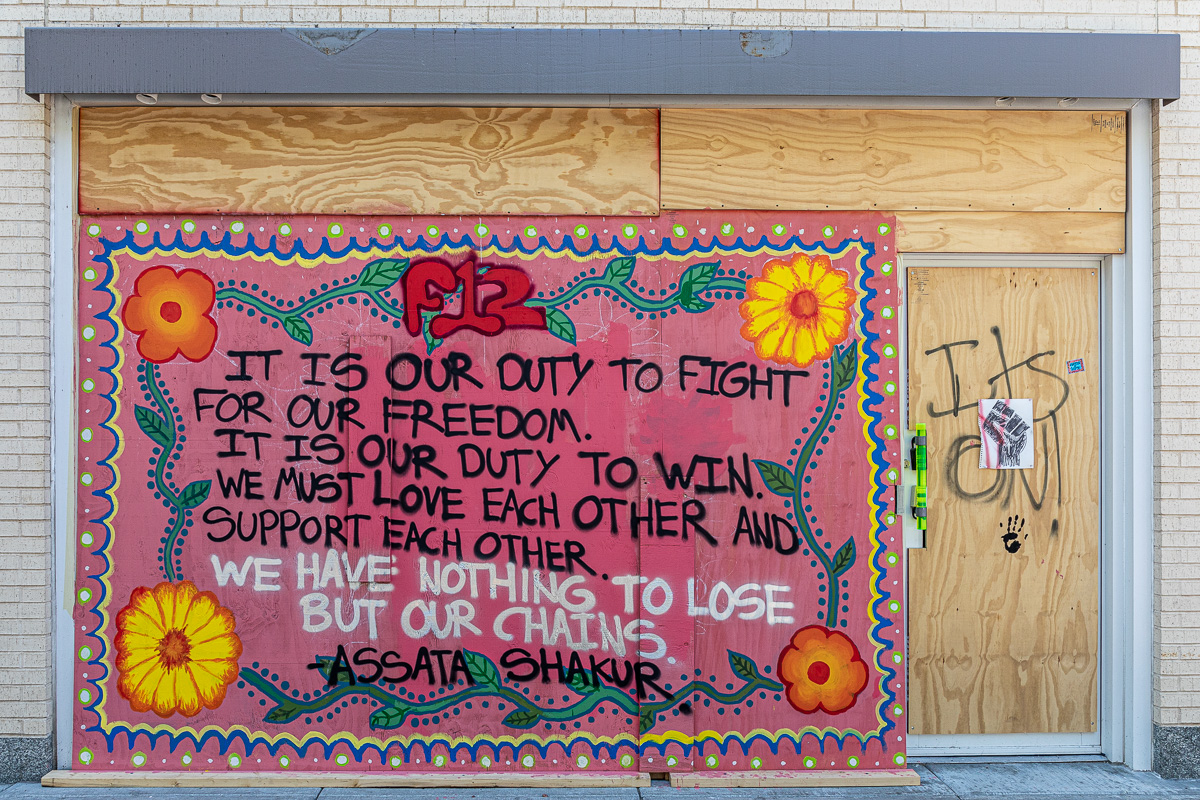 F12
IT IS OUR DUTY TO FIGHT
FOR OUR FREEDOM.
IT IS OUR DUTY TO WIN.
WE MUST LOVE EACH OTHER AND
SUPPORT EACH OTHER.
WE HAVE NOTHING TO LOSE
BUT OUR CHAINS.
-ASSATA SHAKUR
ItS
ON!